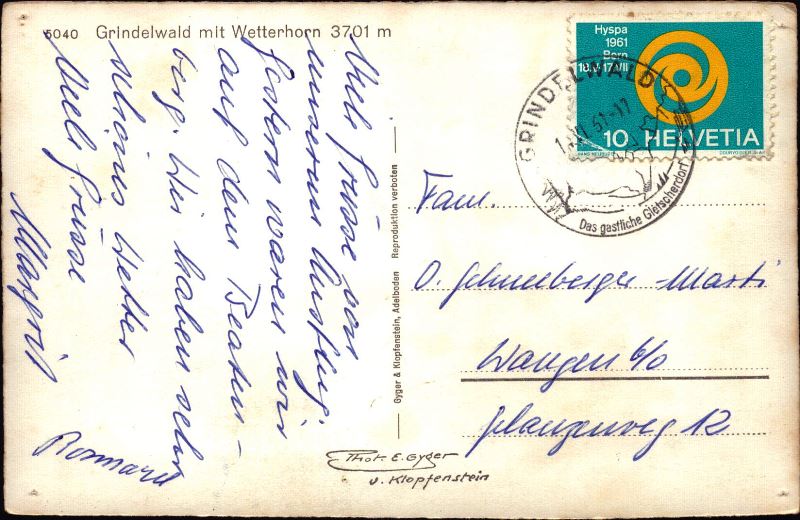 5040 Grindelwald mit Wetterhorn 3701 m
Viele Grüsse von
unserem Ausflug.
Gestern waren wir
auf dem Beaten-
berg. Wir haben sehr
schönes Wetter
Viele Grüsse
Margrit
Gyger & Klopfenstein, Adelboden Reproduktion verboten
Phot. E. Gyger
u. Klopfenstein
Hyspa
1961
Bern
10 HELVETIA
GRINDELWALD
Das gastliche Gletscherdorf
Fam.
O. Schneeberger-Marti
Wangen b/o